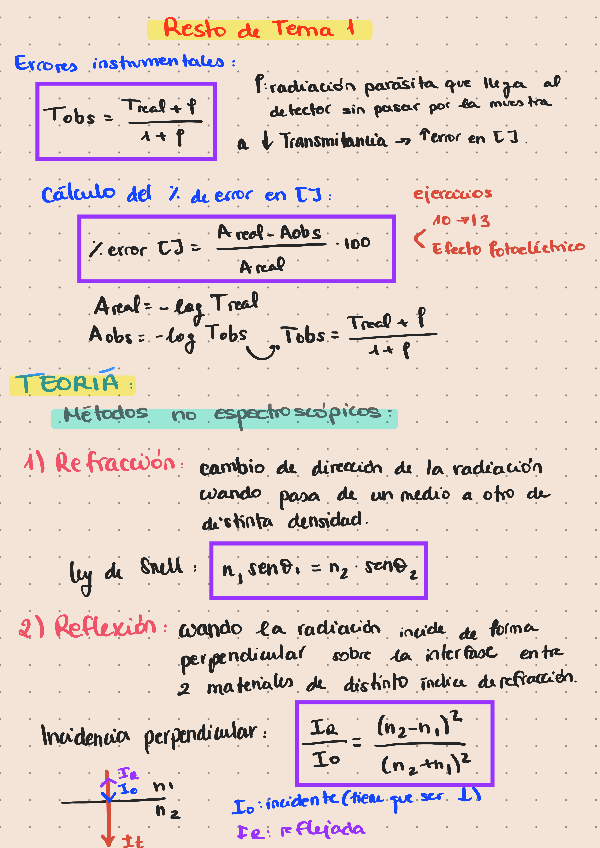 Resto de Tema 1
Errores instrumentales:
Tobs = (Treal + P) / (1 + P)
P: radiación parásita que llega al
detector sin pasar por la muestra
a ↓ Transmitancia → ↑error en [ ].
Cálculo del % de error en [ ]:
% error [ ] = (Areal - Aobs) / Areal · 100
ejercicios
10 → 13
< Efecto fotoeléctrico
Areal = - log Treal
Aobs = - log Tobs → Tobs = (Treal + P) / (1 + P)
TEORÍA:
Métodos no espectroscópicos:
1) Refracción: cambio de dirección de la radiación
cuando pasa de un medio a otro de
distinta densidad.
ley de Snell: n₁ senθ₁ = n₂ · senθ₂
2) Reflexión: cuando la radiación incide de forma
perpendicular sobre la interfase entre
2 materiales de distinto índice de refracción.
Incidencia perpendicular: IR / I0 = (n₂-n₁)² / (n₂+n₁)²
IR
I0 n₁
n₂
It
I0: incidente (tiene que ser ⊥)
IR: reflejada